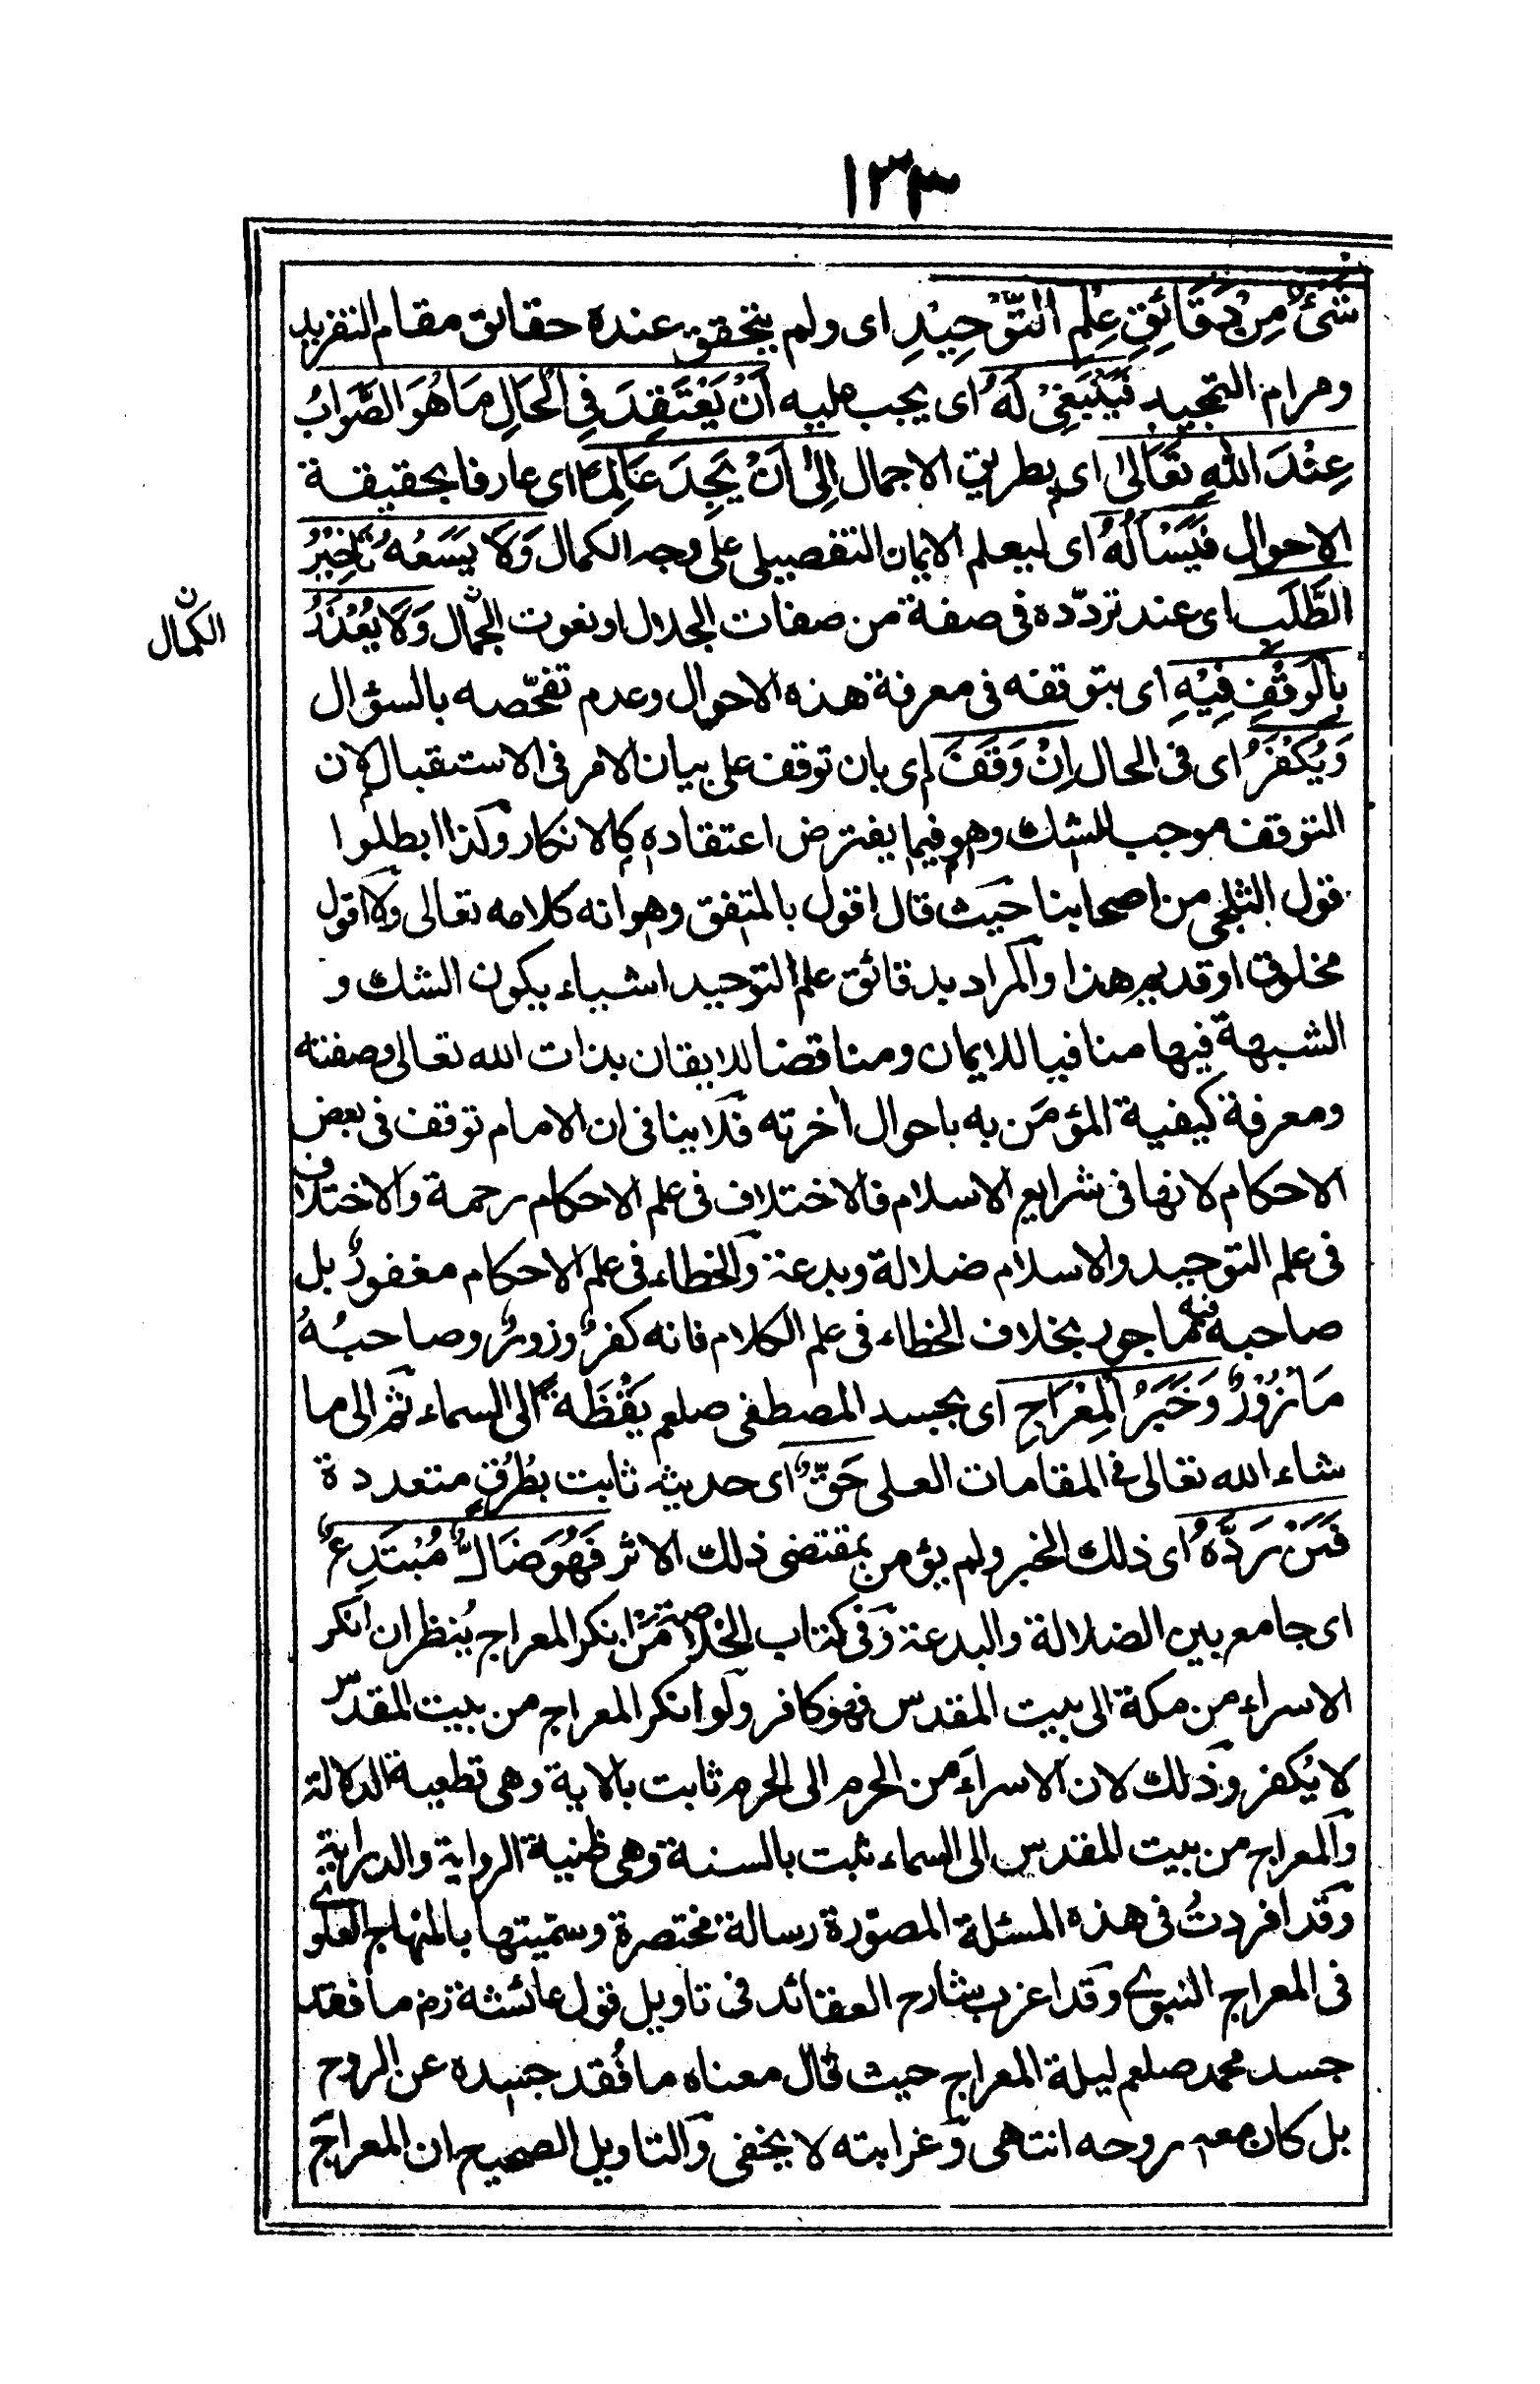 ١٣٣
شَئٌ مِنْ دَقَائِقِ عِلْمِ التَّوْحِيْدِ اى ولم يتحقق عنده حقائق مقام التفريد
ومرام التجيد فَيَنْبَغِىْ لَهُ اى يجب عليه اَنْ يَعْتَقِدَ فِى الْحَالِ مَا هُوَ الصَّوَابُ
عِنْدَ اللهِ تَعَالىٰ اى بطريق الاجمال اِلىٰ اَنْ يَجِدَ عَالِمًا اى عارفا بحقيقة
الاحوال فَيَسْاَلُهُ اى ليعلم الايمان التفصيلى على وجه الكمال وَلَا يَسَعُهُ تَاخِيْرُ
الطَّلَبِ اى عند تردّده فى صفة من صفات الجلال او نعوت الجمال وَلَا يُعْذَرُ
الكمال ن
بِالْوَقْفِ فِيْهِ اى بتوقفه فى معرفة هذه الاحوال وعدم تفحّصه بالسؤال
وَيُكْفَرُ اى فى الحال اِنْ وَقَفَ اى بان توقف على بيان الامر فى الاستقبال لان
التوقف موجب للشك وهو فيما يفترض اعتقاده كالانكار ولذا ابطلوا
قول الثلجى من اصحابنا حيث قال اقول بالمتفق وهو انه كلامه تعالى ولا اقول
مخلوق او قديم هذا والمراد بدقائق علم التوحيد اشياء يكون الشك و
الشبهة فيها منافيا للايمان ومناقضا للايقان بذات الله تعالى وصفته
ومعرفة كيفية المؤمَن به باحوال اخرته فلا ينافى ان الامام توقف فى بعض
الاحكام لانها فى شرايع الاسلام فالاختلاف فى علم الاحكام رحمة والاختلاف
فى علم التوحيد والاسلام ضلالة وبدعة والخطاء فى علم الاحكام مغفورٌ بل
صاحبه فيه ماجور بخلاف الخطاء فى علم الكلام فانه كفرٌ وزورٌ وصاحبُهُ
مَازُوْرٌ وَخَبَرُ الْمِعْرَاجِ اى بجسد المصطفى صلعم يَقْظَةً الى السماء ثم الى ما
شاء الله تعالى فى المقامات العلى حَقٌّ اى حديثه ثابت بطُرُقٍ متعددة
فَمَنْ رَدَّهُ اى ذلك الخبر ولم يؤمن بمقتضى ذلك الاثر فَهُوَ ضَالٌّ مُبْتَدِعٌ
اى جامع بين الضلالة والبدعة وفى كتاب الخلاصة مَنْ انكر المعراج يُنظر ان انكر
الاسراء من مكة الى بيت المقدس فهو كافر ولو انكر المعراج من بيت المقدس
لا يُكفر وذلك لان الاسراء من الحرم الى الحرم ثابت بالاية وهى قطعية الدلالة
والمعراج من بيت المقدس الى السماء ثبت بالسنة وهى ظنية الرواية والدراية
وقد افردتُ فى هذه المسئلة المصوّرة رسالة مختصرة وسمّيتها بالمنهاج العلوى
فى المعراج النبوى وقد اغرب شارح العقائد فى تاويل قول عائشة رضـ ما فقد
جسد محمد صلعم ليلة المعراج حيث قال معناه ما فُقد جسده عن الروح
بل كان معه روحه انتهى وغرابته لا يخفى والتاويل الصحيح ان المعراج